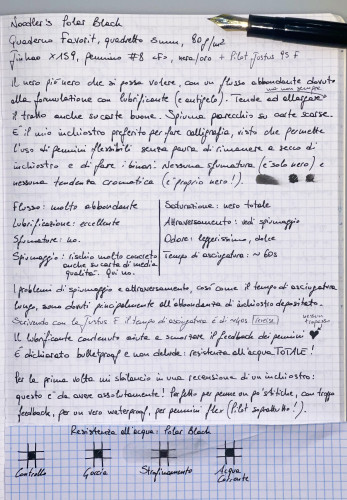 Noodler's Polar Black
Quaderno Favorit, quadretto 5mm, 80 g/m²
Jinhao X159, pennino #8 «F», nera/oro + Pilot Justus 95 F
Il nero più nero che si possa volere, con un flusso abbondante dovuto
alla formulazione con lubrificante (e antigelo). Tende ad allargare
ma non sempre
il tratto anche su carte buone. Spiuma parecchio su carte scarse.
È il mio inchiostro preferito per fare calligrafia, visto che permette
l'uso di pennini flessibili senza paura di rimanere a secco di
inchiostro e di fare i binari. Nessuna sfumatura (e solo nero) e
nessuna tendenza cromatica (è proprio nero!).
Flusso: molto abbondante
Lubrificazione: eccellente
Sfumature: no.
Spiumaggio: rischio molto concreto
anche su carta di media
qualità. Qui no.
Saturazione: nero totale
Attraversamento: vedi spiumaggio
Odore: leggerissimo, dolce
Tempo di asciugatura: ~ 60s
I problemi di spiumaggio e attraversamento, così come il tempo di asciugatura
lungo, sono dovuti principalmente all'abbondanza di inchiostro depositato.
Scrivendo con la Justus F il tempo di asciugatura è di ~40s
Il lubrificante contenuto aiuta a smorzare il feedback dei pennini
È dichiarato bulletproof e non delude: resistenza all'acqua TOTALE!
Per la prima volta mi sbilancio in una recensione di un inchiostro:
questo è da avere assolutamente! Perfetto per penne un po' stitiche, con troppo
feedback, per un vero waterproof, per pennini flex (Pilot soprattutto!).
Resistenza all'acqua: Polar Black
Controllo
Goccia
Strofinamento
Acqua
Corrente